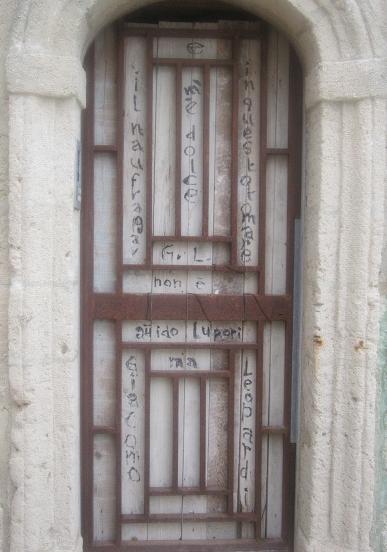 e
il naufragar
m'è dolce
in questo mare
G. L.
non è
guido Lupori
ma
Giacomo
Leopardi